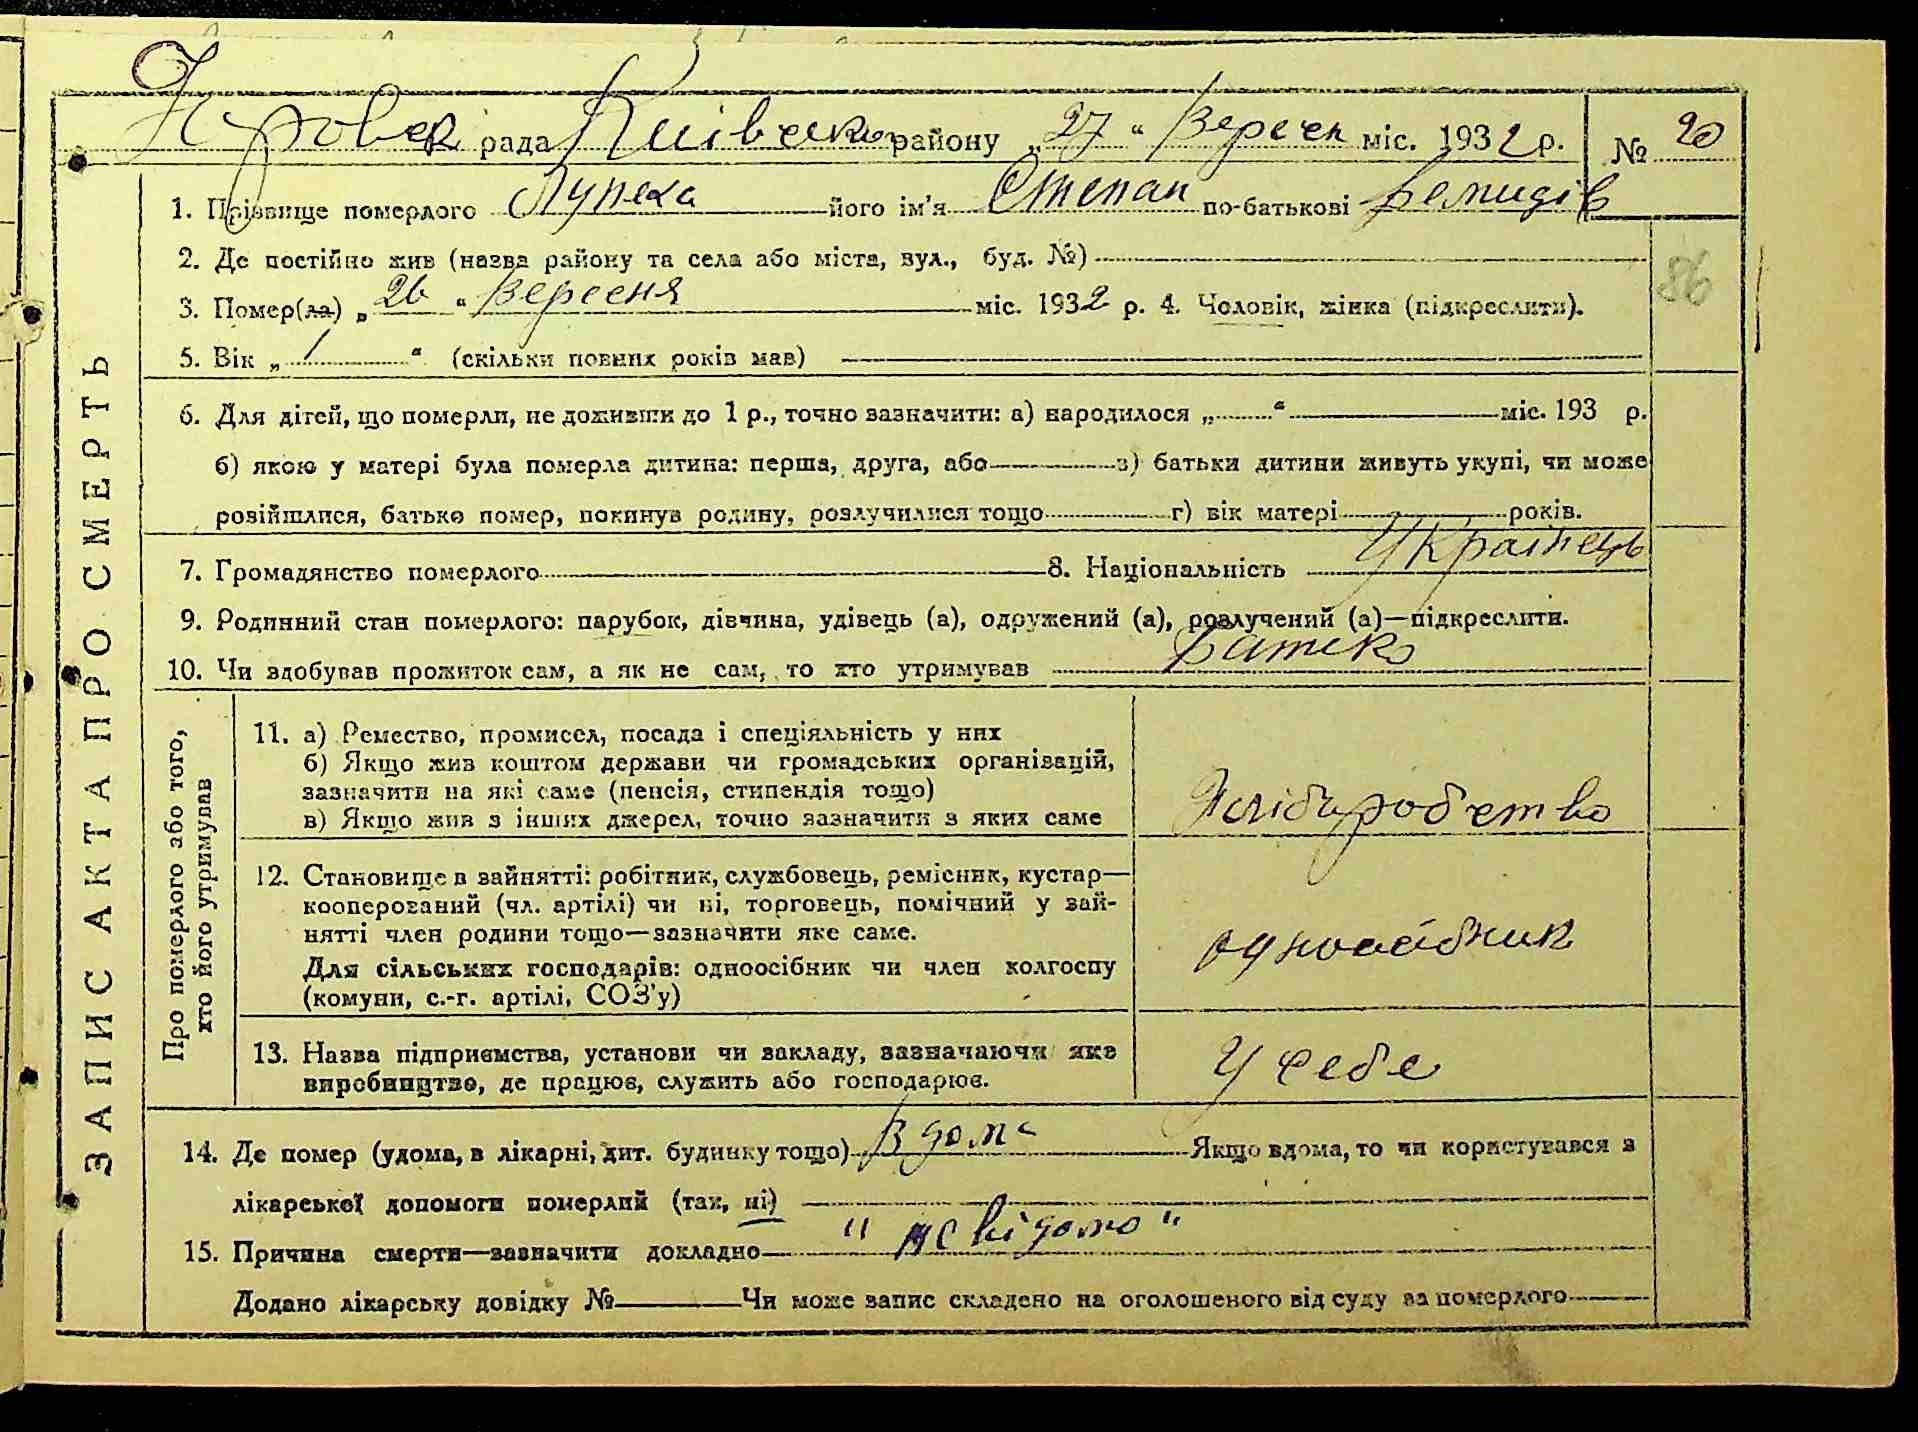 рада Київськ району „ 27 “ Вересн міс. 1932 р. № 20
1. Прізвище померлого Лупеха його ім'я Степан по-батькові Демидів
2. Де постійно жив (назва району та села або міста, вул., буд. №)
86
3. Помер(ла) „ 26 “ Вересня міс. 1932 р. 4. Чоловік, жінка (підкреслити).
5. Вік „ 1 “ (скільки повних років мав)
6. Для дітей, що померли, не доживши до 1 р., точно зазначити: а) народилося „ “ міс. 193 р.
б) якою у матері була померла дитина: перша, друга, або з) батьки дитини живуть укупі, чи може
розійшлися, батько помер, покинув родину, розлучилися тощо г) вік матері років.
7. Громадянство померлого 8. Національність Українець
9. Родинний стан померлого: парубок, дівчина, удівець (а), одружений (а), розлучений (а)—підкреслити.
10. Чи здобував прожиток сам, а як не сам, то хто утримував Батько
ЗАПИС АКТА ПРО СМЕРТЬ
Про померлого або того,
хто його утримував
11. а) Ремество, промисел, посада і спеціяльність у них
б) Якщо жив коштом держави чи громадських організацій,
зазначити на які саме (пенсія, стипендія тощо)
в) Якщо жив з інших джерел, точно зазначити з яких саме
Хліборобство
12. Становище в зайнятті: робітник, службовець, ремісник, кустар—
кооперований (чл. артілі) чи ні, торговець, помічний у зай-
нятті член родини тощо—зазначити яке саме.
Для сільських господарів: одноосібник чи член колгоспу
(комуни, с.-г. артілі, СОЗ'у)
одноосібник
13. Назва підприємства, установи чи закладу, зазначаючи яке
виробництво, де працює, служить або господарює.
У себе
14. Де помер (удома, в лікарні, дит. будинку тощо) Вдома Якщо вдома, то чи користувався з
лікарської допомоги померлий (так, ні)
15. Причина смерти—зазначити докладно "не відомо"
Додано лікарську довідку № Чи може запис складено на оголошеного від суду за померлого